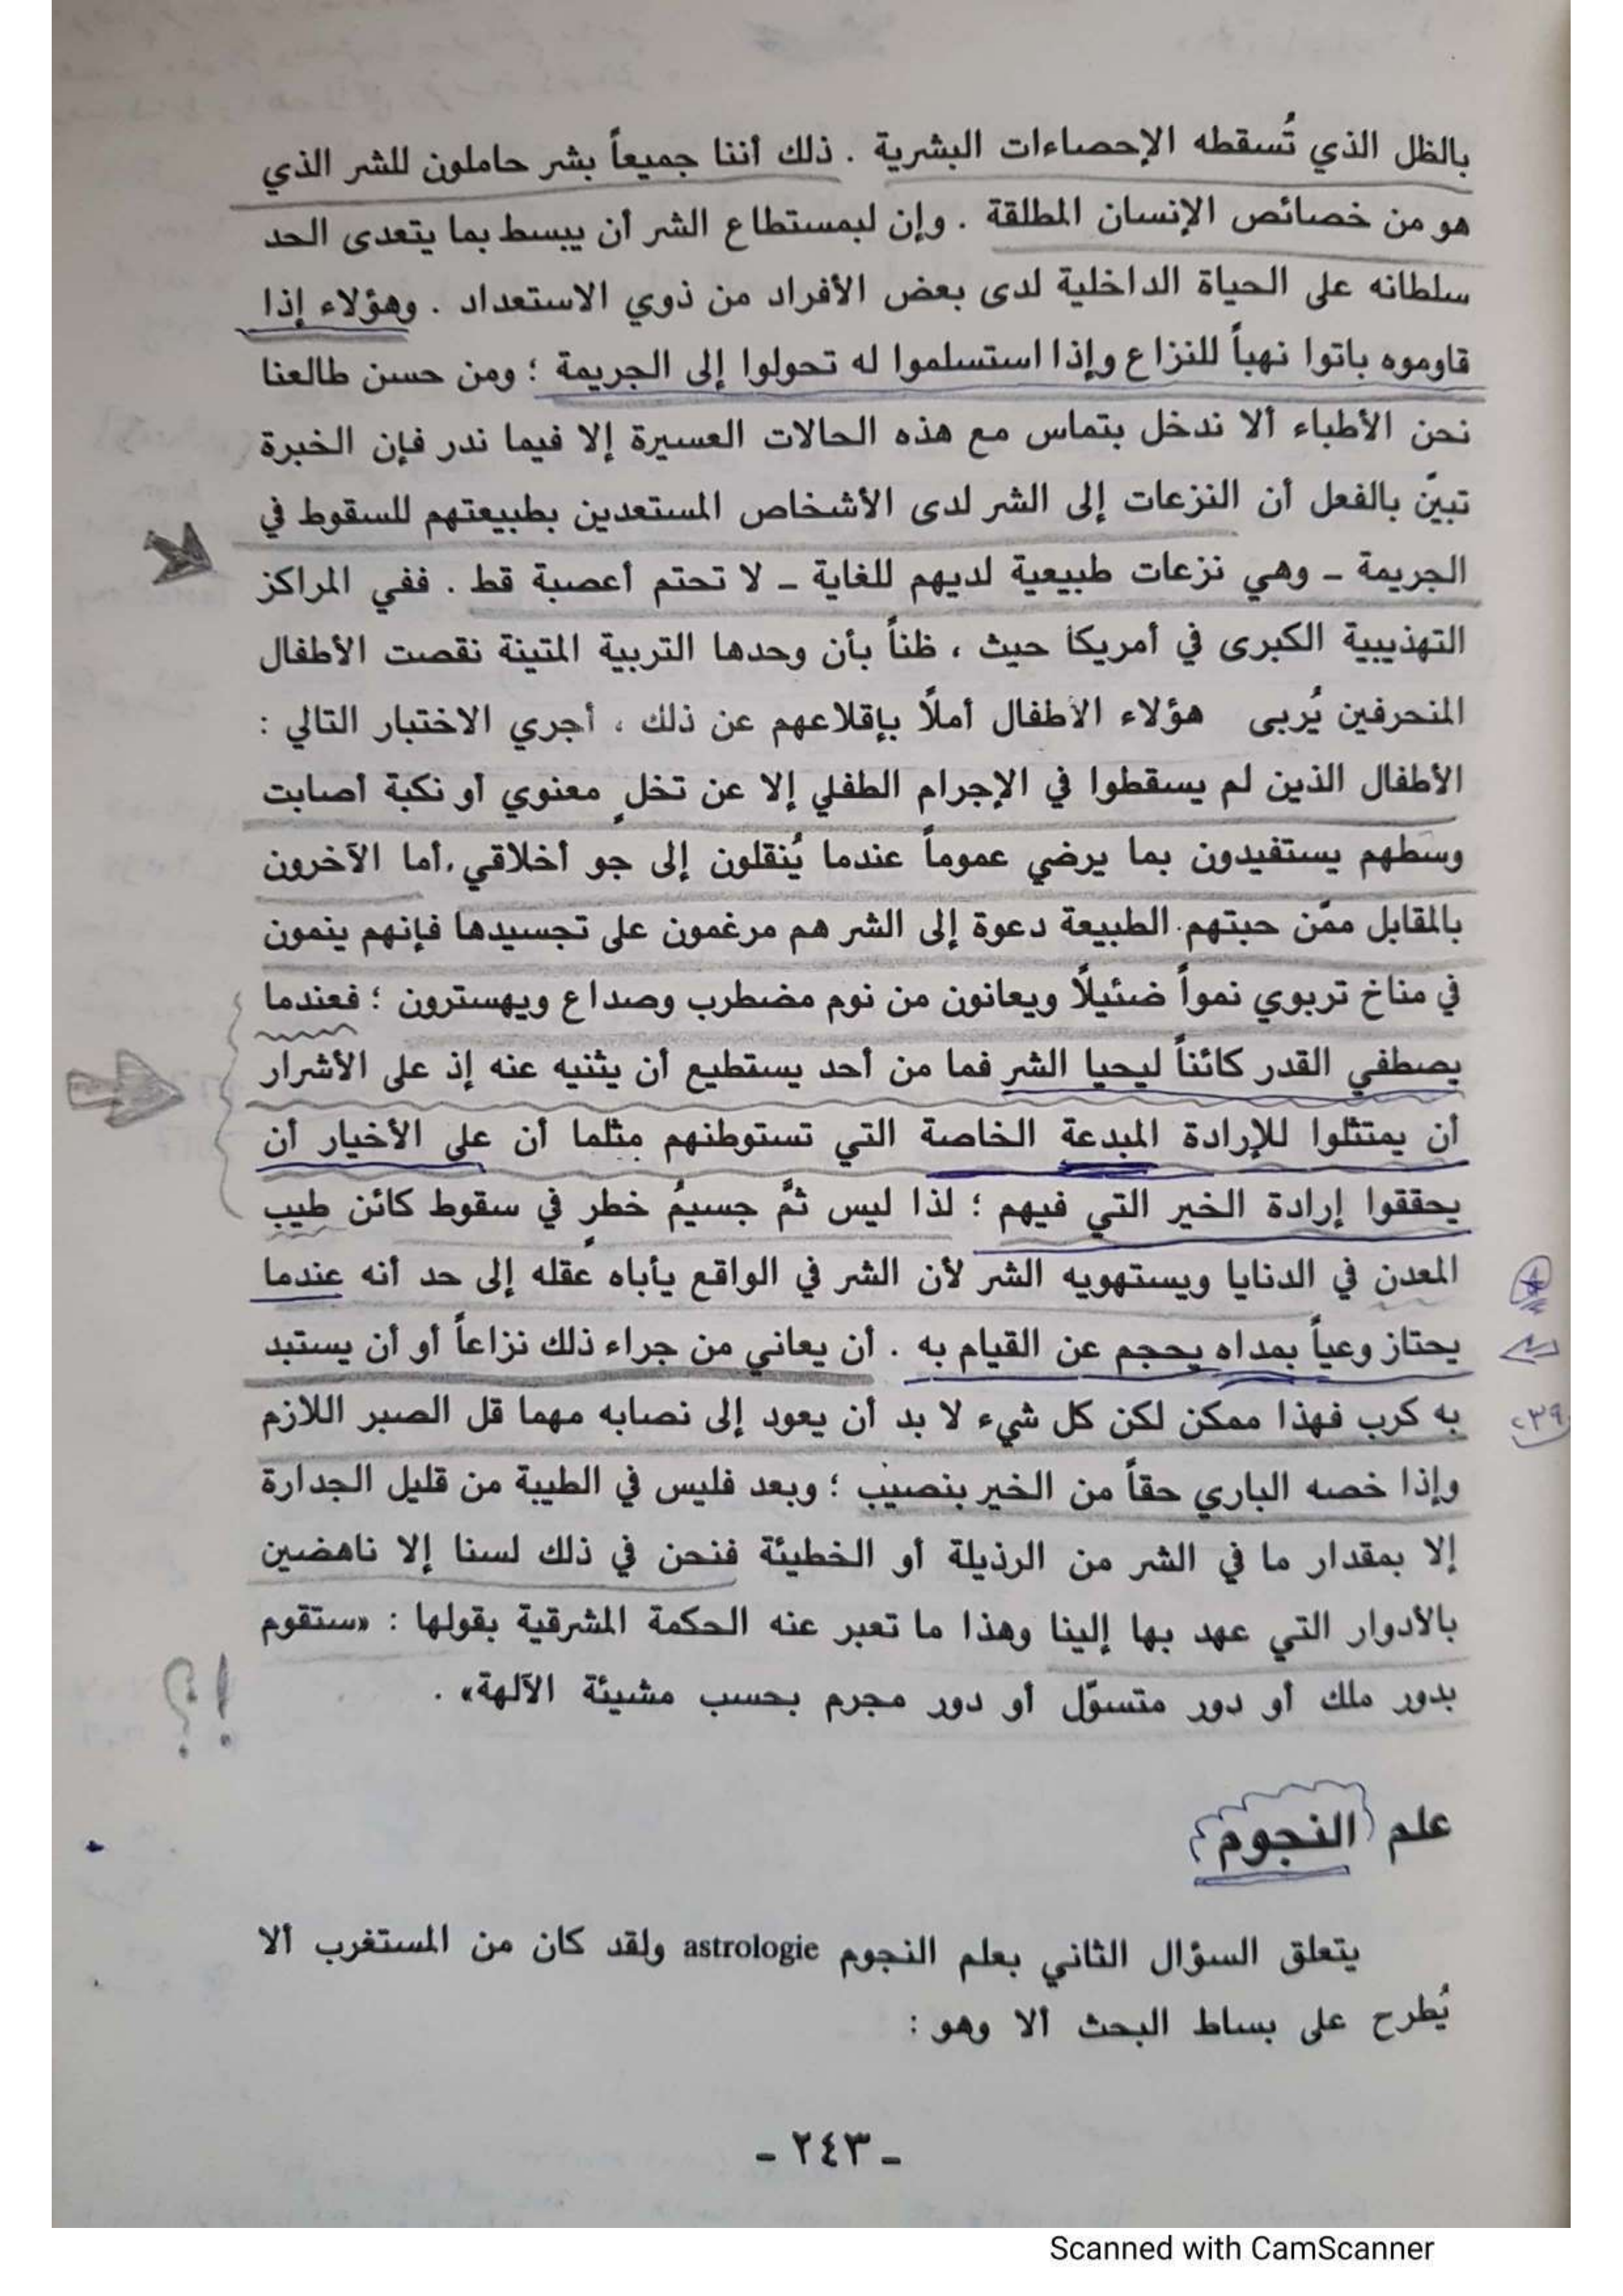 بالظل الذي تُسقطه الإحصاءات البشرية . ذلك أننا جميعاً بشر حاملون للشر الذي
هو من خصائص الإنسان المطلقة . وإن لبمستطاع الشر أن يبسط بما يتعدى الحد
سلطانه على الحياة الداخلية لدى بعض الأفراد من ذوي الاستعداد . وهؤلاء إذا
قاوموه باتوا نهباً للنزاع وإذا استسلموا له تحولوا إلى الجريمة ؛ ومن حسن طالعنا
نحن الأطباء ألا ندخل بتماس مع هذه الحالات العسيرة إلا فيما ندر فإن الخبرة
تبيّن بالفعل أن النزعات إلى الشر لدى الأشخاص المستعدين بطبيعتهم للسقوط في
الجريمة - وهي نزعات طبيعية لديهم للغاية - لا تحتم أعصبة قط . ففي المراكز
التهذيبية الكبرى في أمريكا حيث ، ظناً بأن وحدها التربية المتينة نقصت الأطفال
المنحرفين يُربى هؤلاء الأطفال أملاً بإقلاعهم عن ذلك ، أجري الاختبار التالي :
الأطفال الذين لم يسقطوا في الإجرام الطفلي إلا عن تخلٍ معنوي أو نكبة أصابت
وسطهم يستفيدون بما يرضي عموماً عندما يُنقلون إلى جو أخلاقي . أما الآخرون
بالمقابل ممّن حبتهم الطبيعة دعوة إلى الشر هم مرغمون على تجسيدها فإنهم ينمون
في مناخ تربوي نمواً ضئيلاً ويعانون من نوم مضطرب وصداع ويهسترون ؛ فعندما
يصطفي القدر كائناً ليحيا الشر فما من أحد يستطيع أن يثنيه عنه إذ على الأشرار
أن يمتثلوا للإرادة المبدعة الخاصة التي تستوطنهم مثلما أن على الأخيار أن
يحققوا إرادة الخير التي فيهم ؛ لذا ليس ثمَّ جسيمُ خطرٍ في سقوط كائن طيب
المعدن في الدنايا ويستهويه الشر لأن الشر في الواقع يأباه عقله إلى حد أنه عندما
يحتاز وعياً بمداه يحجم عن القيام به . أن يعاني من جراء ذلك نزاعاً أو أن يستبد
به كرب فهذا ممكن لكن كل شيء لا بد أن يعود إلى نصابه مهما قل الصبر اللازم
وإذا خصه الباري حقاً من الخير بنصيب ؛ وبعد فليس في الطيبة من قليل الجدارة
إلا بمقدار ما في الشر من الرذيلة أو الخطيئة فنحن في ذلك لسنا إلا ناهضين
بالأدوار التي عهد بها إلينا وهذا ما تعبر عنه الحكمة المشرقية بقولها : «ستقوم
بدور ملك أو دور متسوّل أو دور مجرم بحسب مشيئة الآلهة» .
!؟
علم النجوم
يتعلق السؤال الثاني بعلم النجوم astrologie ولقد كان من المستغرب ألا
يُطرح على بساط البحث ألا وهو :
- ٢٤٣ -
Scanned with CamScanner